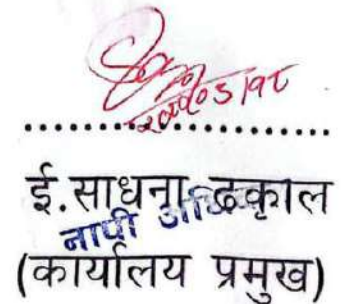 ई.साधना ढकाल
नापी
(कार्यालय प्रमुख)